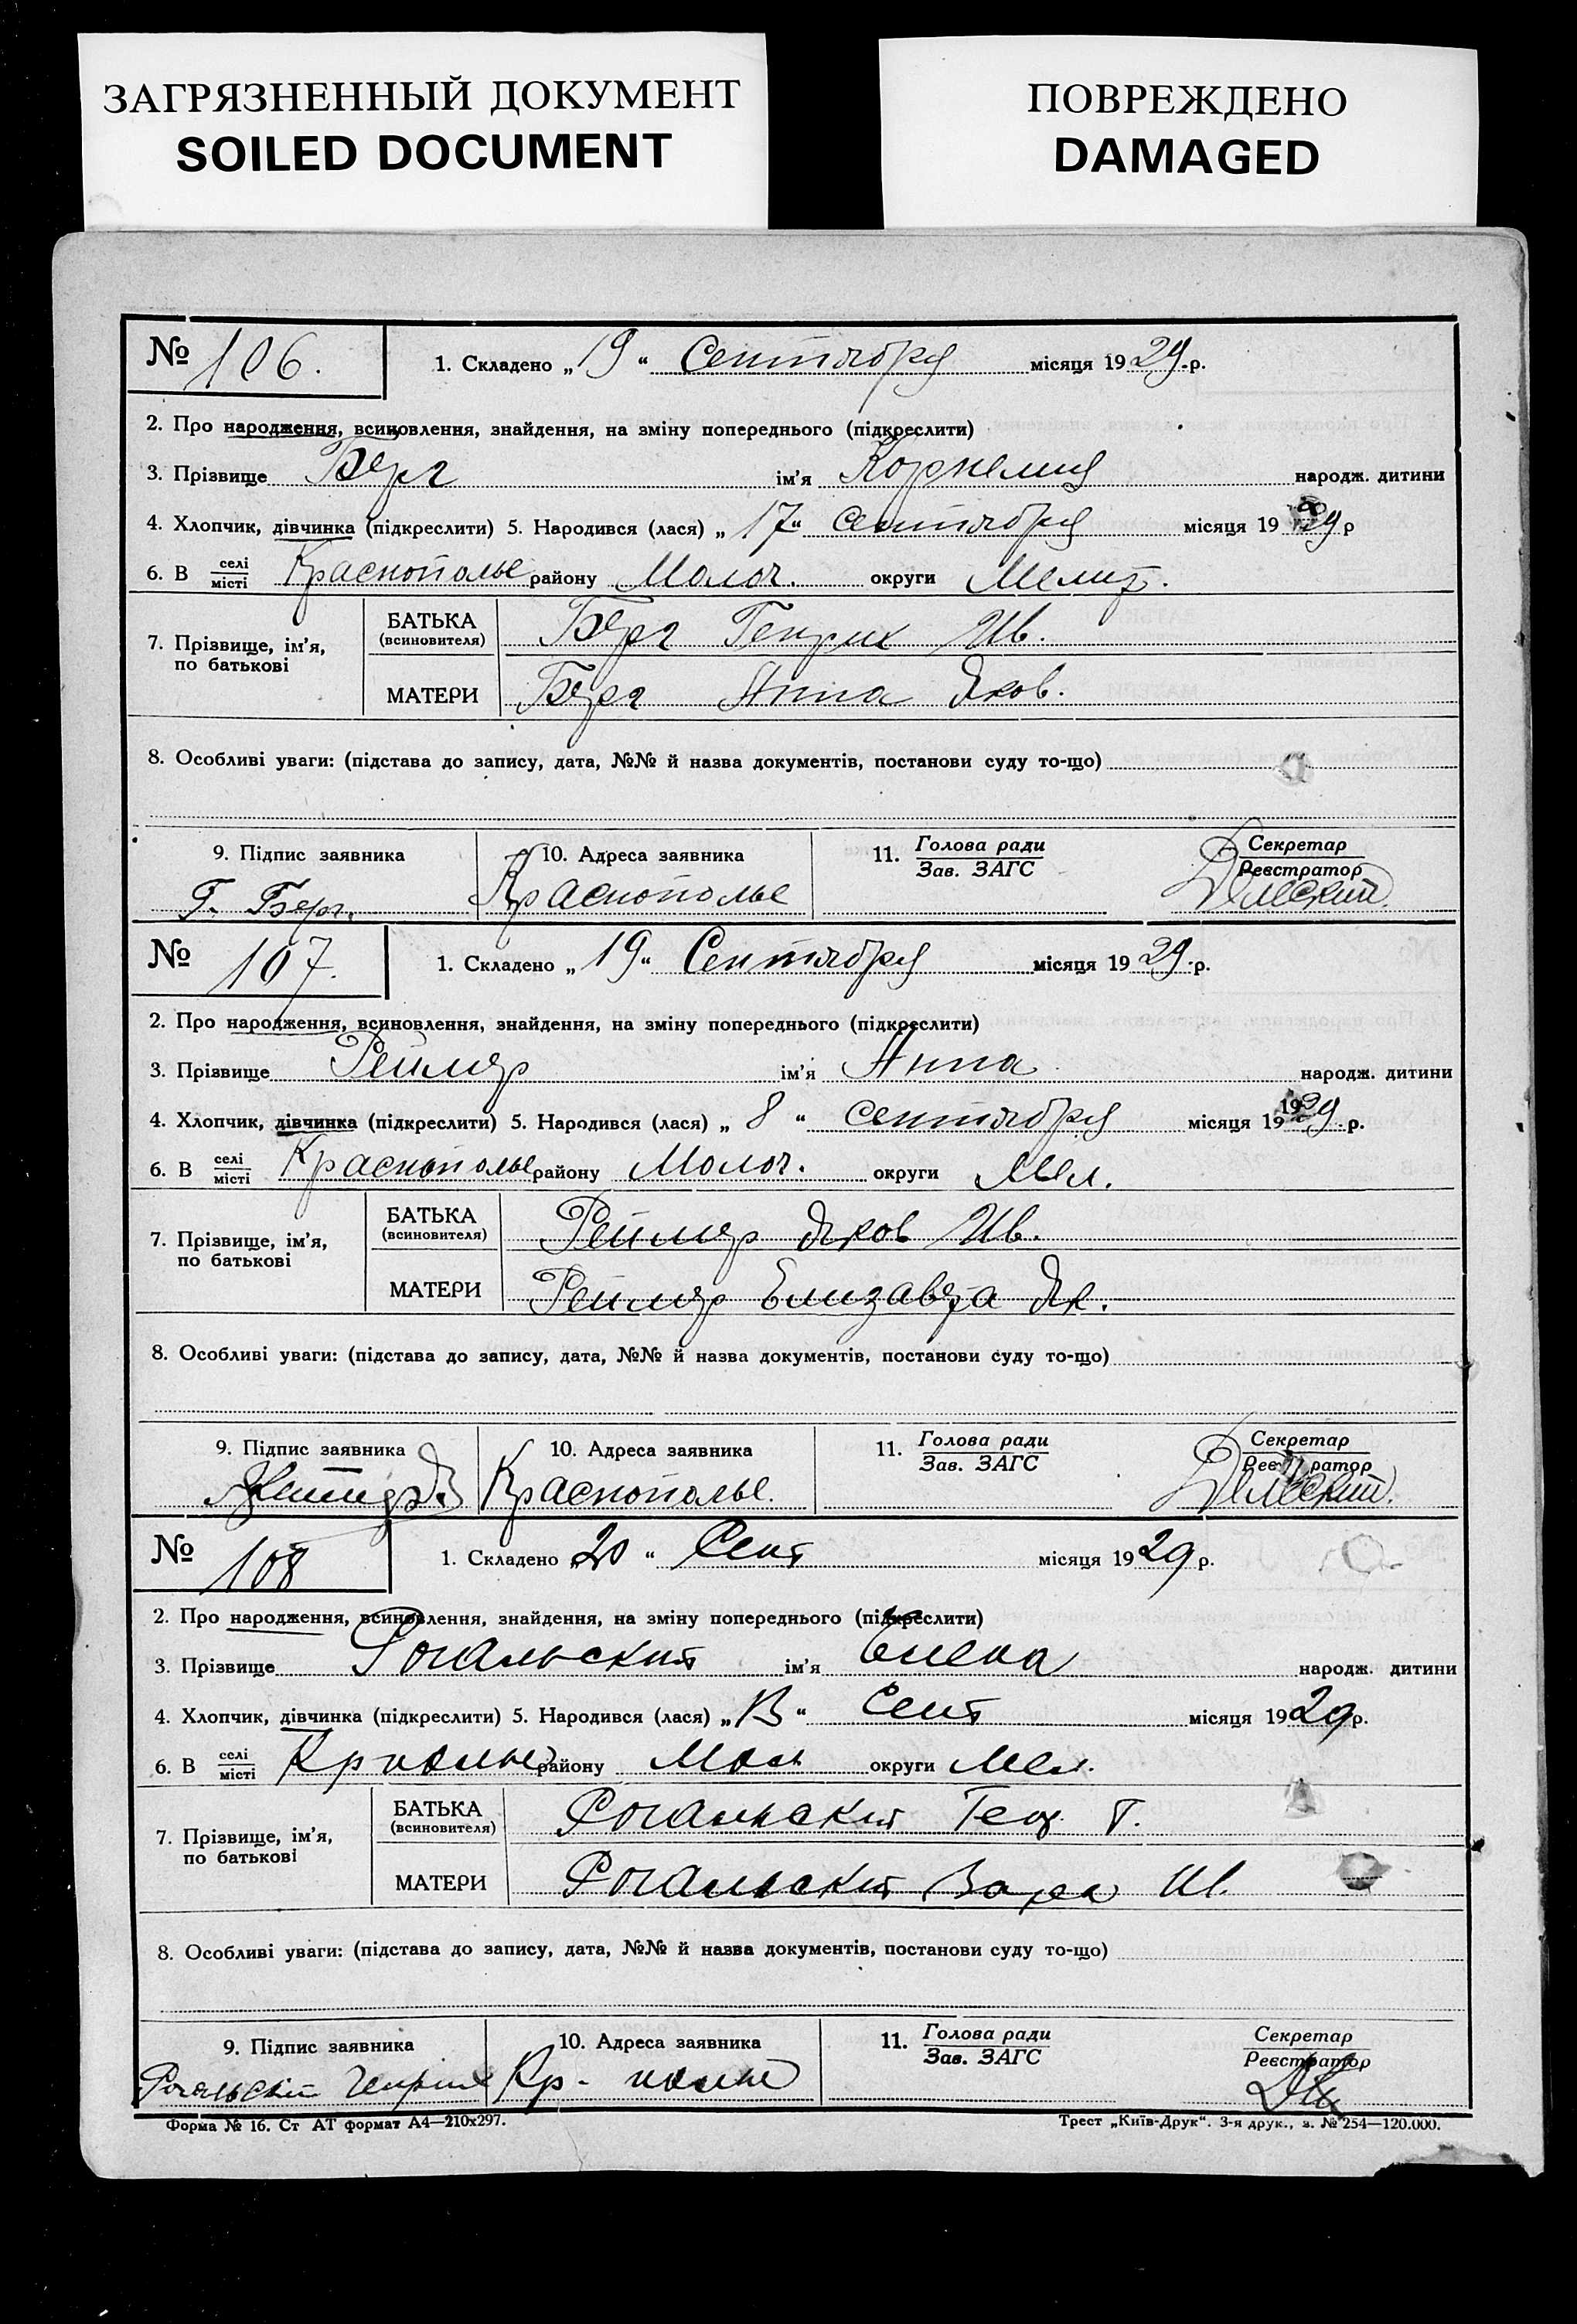 ЗАГРЯЗНЕННЫЙ ДОКУМЕНТ
SOILED DOCUMENT
ПОВРЕЖДЕНО
DAMAGED
№ 106.
1. Складено „19“ Сентября місяця 1929.р.
2. Про народження, всиновлення, знайдення, на зміну попереднього (підкреслити)
3. Прізвище Берг ім'я Корнелия народж. дитини
4. Хлопчик, дівчинка (підкреслити) 5. Народився (лася) „17“ сентября місяця 1929 р
6. В селі/місті Краснополье району Молоч. округи Мелит.
7. Прізвище, ім'я, по батькові
БАТЬКА (всиновителя) Берг Генрих Ив.
МАТЕРИ Берг Анна Яков.
8. Особливі уваги: (підстава до запису, дата, №№ й назва документів, постанови суду то-що)
9. Підпис заявника Г. Берг.
10. Адреса заявника Краснополье
11. Голова ради/Зав. ЗАГС
Секретар/Реєстратор
№ 107.
1. Складено „19“ Сентября місяця 1929.р.
2. Про народження, всиновлення, знайдення, на зміну попереднього (підкреслити)
3. Прізвище Реймер ім'я Анна народж. дитини
4. Хлопчик, дівчинка (підкреслити) 5. Народився (лася) „8“ сентября місяця 1929.р.
6. В селі/місті Краснополье району Молоч. округи Мел.
7. Прізвище, ім'я, по батькові
БАТЬКА (всиновителя) Реймер Яков Ив.
МАТЕРИ Реймер Елизавета Як.
8. Особливі уваги: (підстава до запису, дата, №№ й назва документів, постанови суду то-що)
9. Підпис заявника
10. Адреса заявника Краснополье.
11. Голова ради/Зав. ЗАГС
Секретар/Реєстратор
№ 108
1. Складено „20“ Сент місяця 1929 р.
2. Про народження, всиновлення, знайдення, на зміну попереднього (підкреслити)
3. Прізвище Рогальский ім'я Елена народж. дитини
4. Хлопчик, дівчинка (підкреслити) 5. Народився (лася) „13“ Сент місяця 1929р.
6. В селі/місті району Мол округи Мел.
7. Прізвище, ім'я, по батькові
БАТЬКА (всиновителя) Рогальский Г.
МАТЕРИ Рогальский
8. Особливі уваги: (підстава до запису, дата, №№ й назва документів, постанови суду то-що)
9. Підпис заявника Рогальский Генрих
10. Адреса заявника Кр-
11. Голова ради/Зав. ЗАГС
Секретар/Реєстратор
Форма № 16. Ст АТ формат А4—210х297.
Трест „Київ-Друк“. 3-я друк., з. № 254—120.000.